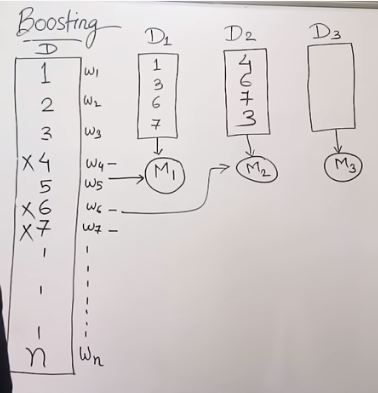 Boosting
D
1 w₁
2 w₂
3 w₃
x 4 w₄ -
5 w₅
x 6 w₆ -
x 7 w₇ -
n wₙ
D₁
1
3
6
7
M₁
D₂
4
6
7
3
M₂
D₃
M₃